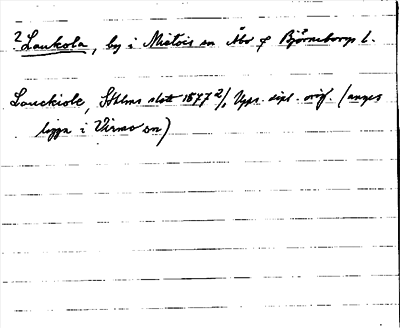 2 Laukola, by i Mietois sn Åbo o Björneborgs l.
Lauckiole, Sthlms slott 1577 2/1 Upps. dipl. orig. (anges
ligga i Virmo sn)